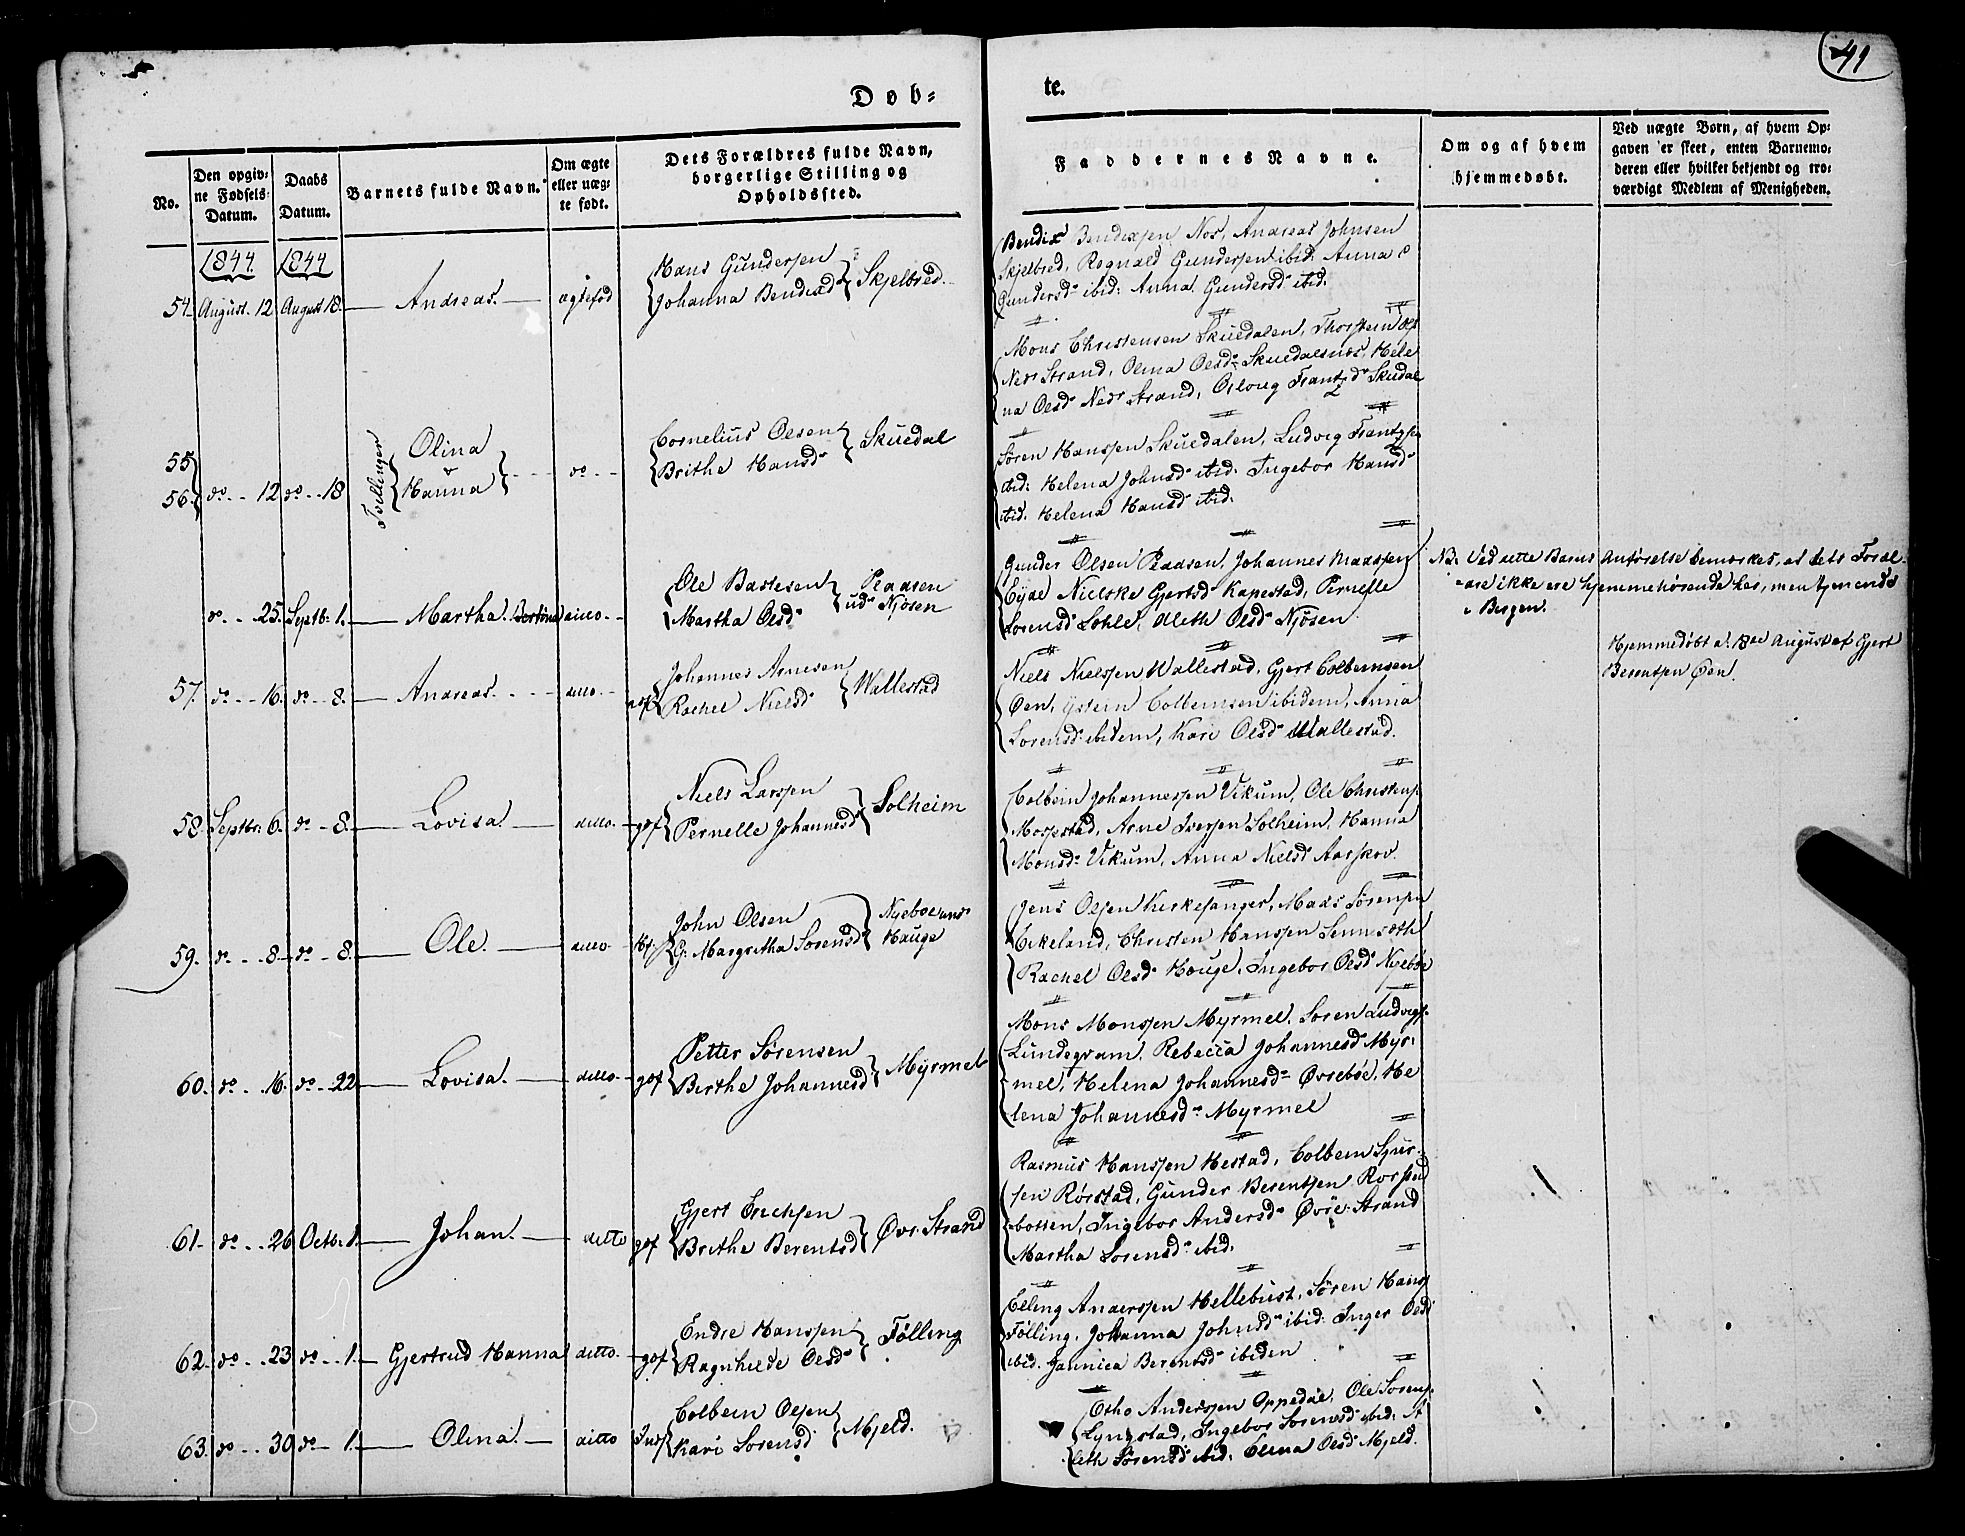 41
Døb-
te.
No.
Den opgiv-
ne Fødsels-
Datum.
Daabs
Datum.
Barnets fulde Navn.
Om ægte
eller uæg-
te født.
Dets Forældres fulde Navn,
borgerlige Stilling og
Opholdssted.
Faddernes Navne.
Om og af hvem
hjemmedøbt.
Ved uægte Børn, af hvem Op-
gaven er skeet, enten Barnemo-
deren eller hvilket bekjendt og tro-
værdigt Medlem af Menigheden.
1844 1844
54. August. 12 August 18. Andreas. ægtefød
Hans Gundersen
Johanna Bendixd
Skjelbred.
Bendix Bendixsen Nos, Andreas Johnsen
Skjelbred, Rognald Gundersen ibid. Anna
Gundersd ibid: Anna Gundersd ibid.
Mons Christensen Skuedalen, Thorstein
Nedr Strand, Olina Olsd Skuedalsnæs, Hele
na Olsd Nedr Strand, Oloug Frantzd Skudal
55
56. do 12 do 18
Tvillinger
Olina
Hanna
do
Cornelius Olsen
Brithe Hansd
Skuedal
Søren Hanssen Skuedalen, Ludvig Frantzs
ibid: Helena Johnsd ibid: Ingebor Hansd
ibid. Helena Hansd ibid.
do 25. Septb: 1. Martha. ditto
Ole Bastesen
Martha Olsd
Pladsen
udr Njøsen
Gunder Olsen Pladsen, Johannes Madssen
Eyde Nielske Gjertsd Kapestad, Pernelle
Sørensd Lohle, Aleth Olsd Njøsen
NB. Ved dette Barns Anførelse bemærkes, at dets Foræl-
dre ikke ere hjemmehørende her, men tjenende
i Bergen.
57. do 16. do 8. Andreas. ditto
Johannes Arnesen
Rachel Nielsd
Wallestad
Niels Nielssen Wallestad, Gjert Colbensen
Øen, Ystein Colbensen ibidem, Anna
Sorensd ibidem, Kari Olsd Wallestad.
Hjemmedøbt d. 18de August af Gjert
Berentsen Øen.
58. Septbr: 6. do 8. Lovisa. ditto gof
Niels Larssen
Pernelle Johannesd
Solheim
Colbein Johannessen Vikum, Ole Christens
Mosestad, Arne Iversen Solheim, Hanna
Monsd Vikum, Anna Nielsd Aarskov.
59. do 8. do 8. Ole. ditto
John Olsen
G: Margretha Sorensd
Nyeboe
Hauge
Jens Olsen Kirkesanger, Mads Sørensen
Eikeland, Christen Hanssen Senneseth
Rachel Olsd Houge, Ingebor Olsd Nyeboe
60. do 16. do 22. Lovisa. ditto gof
Petter Sørensen
Berthe Johannesd
Myrmel
Mons Monssen Myrmel, Soren Ludvigs
Lundegram, Rebecca Johannesd Myr-
mel, Helena Johannesd Øvrebøe, He
lena Johannesd Myrmel
61. do 26 Octb: 1. Johan. ditto gof
Gjert Erichsen
Brithe Berentsd
Øvr: Strand
Rasmus Hanssen Hestad, Colbein Siur-
sen Rørstad, Gunder Berentsen Rorsted
botten, Ingebor Andersd Øvre Strand
Martha Sorensd ibid.
62. do 23 do 1. Gjertrud Hanna ditto. gof
Endre Hanssen
Ragnhilde Olsd
Følling
Elling Anderssen Hellebust, Søren Hans
Følling, Johanna Johnsd ibid: Inger Olsd
ibid. Jannica Berentsd ibiden
63. do 30 do 1. Olina. ditto
Colbein Olsen
Kari Sorensd
Mjeld.
Otho Anderssen Oppedal, Ole Sorens
Lyngstad, Ingebor Sorensd ibid: A
leth Sørensd ibid, Elina Olsd Mjeld.